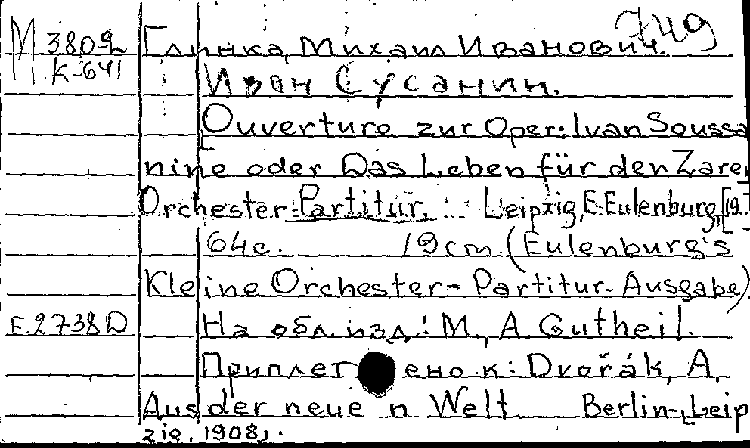 749
M 3809 Глинка, Михаил Иванович.
К-641 Иван Сусанин.
Ouverture zur Oper: Ivan Soussa
nine oder Das Leben für den Zaren
Orchester-Partitur. Leipzig, E. Eulenburg, [19.
64с. 19cm (Eulenburg's
Kleine Orchester-Partitur-Ausgabe)
E.2738D На обл. изд.: M., A. Gutheil.
Приплетено к: Dvořák, A.
Aus der neuen Welt Berlin-Leip
zig, 1908.